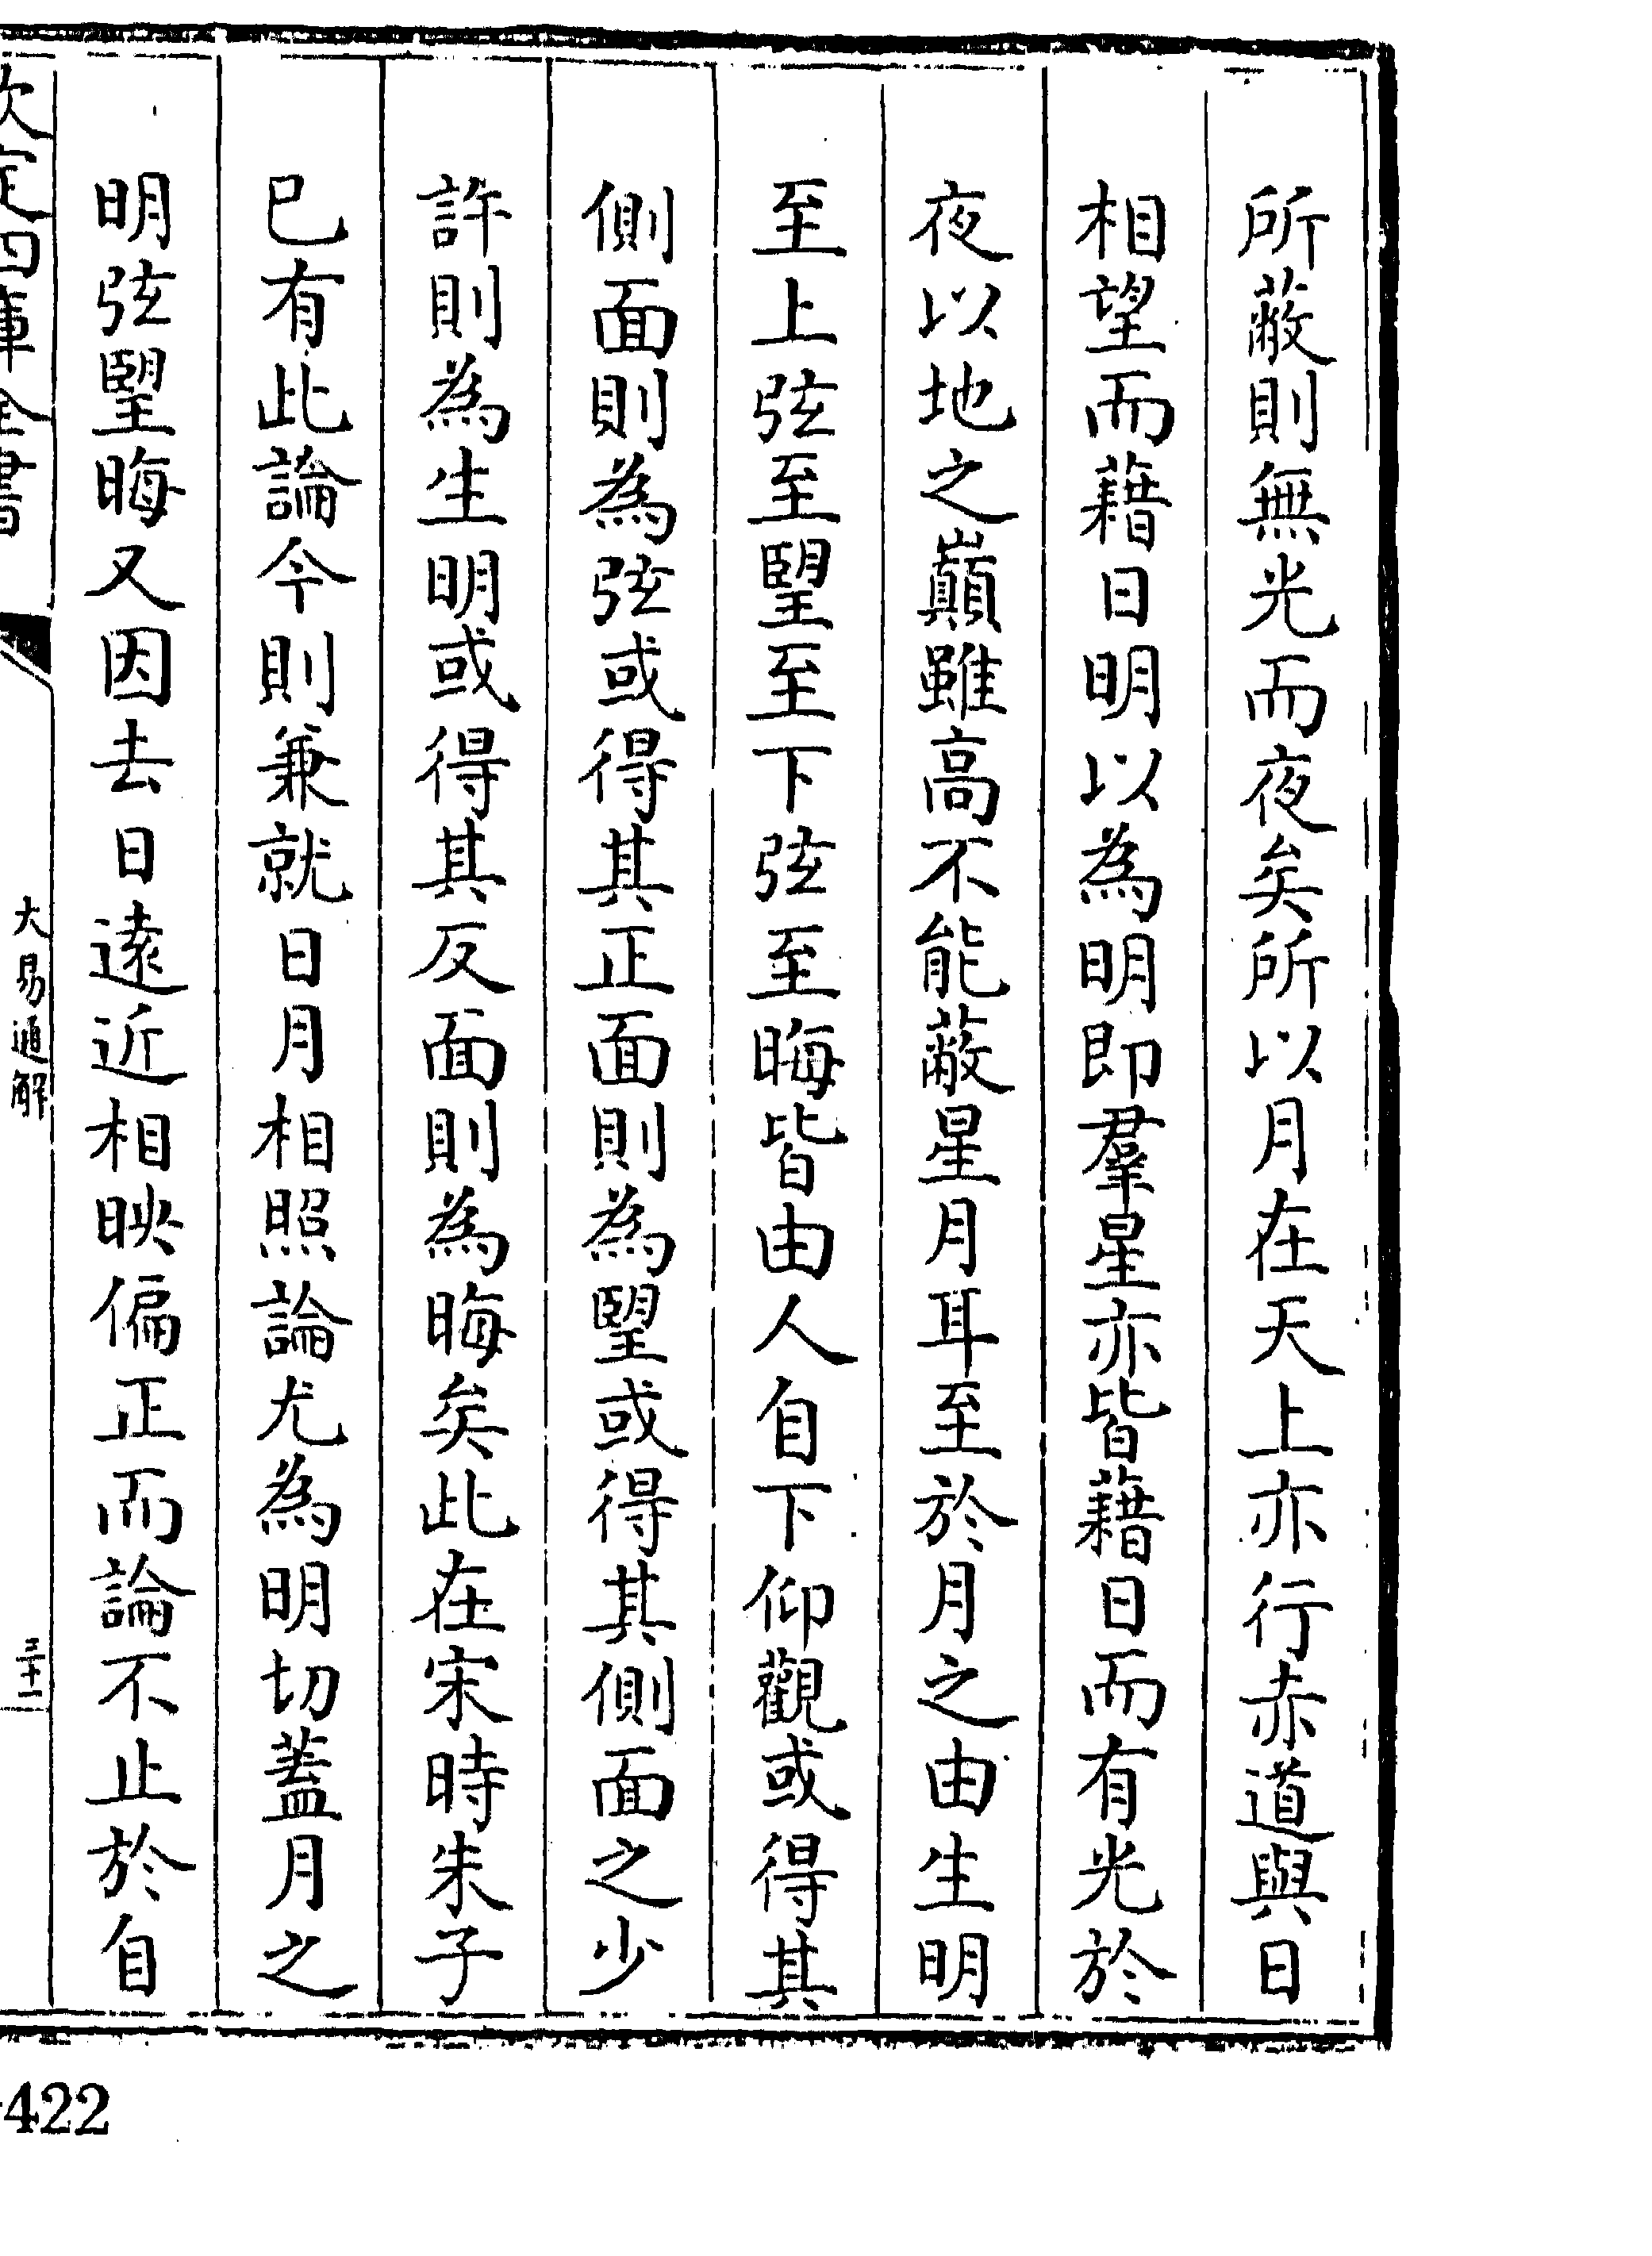 所蔽則無光而夜矣所以月在天上亦行赤道與日
相望而藉日明以為明即羣星亦皆藉日而有光於
夜以地之巔雖高不能蔽星月耳至於月之由生明
至上弦至朢至下弦至晦皆由人自下仰觀或得其
側面則為弦或得其正面則為朢或得其側面之少
許則為生明或得其反面則為晦矣此在宋時朱子
已有此論今則兼就日月相照論尤為明切蓋月之
明弦朢晦又因去日遠近相映偏正而論不止於自
欽定四庫全書
大易通解
三十二
422